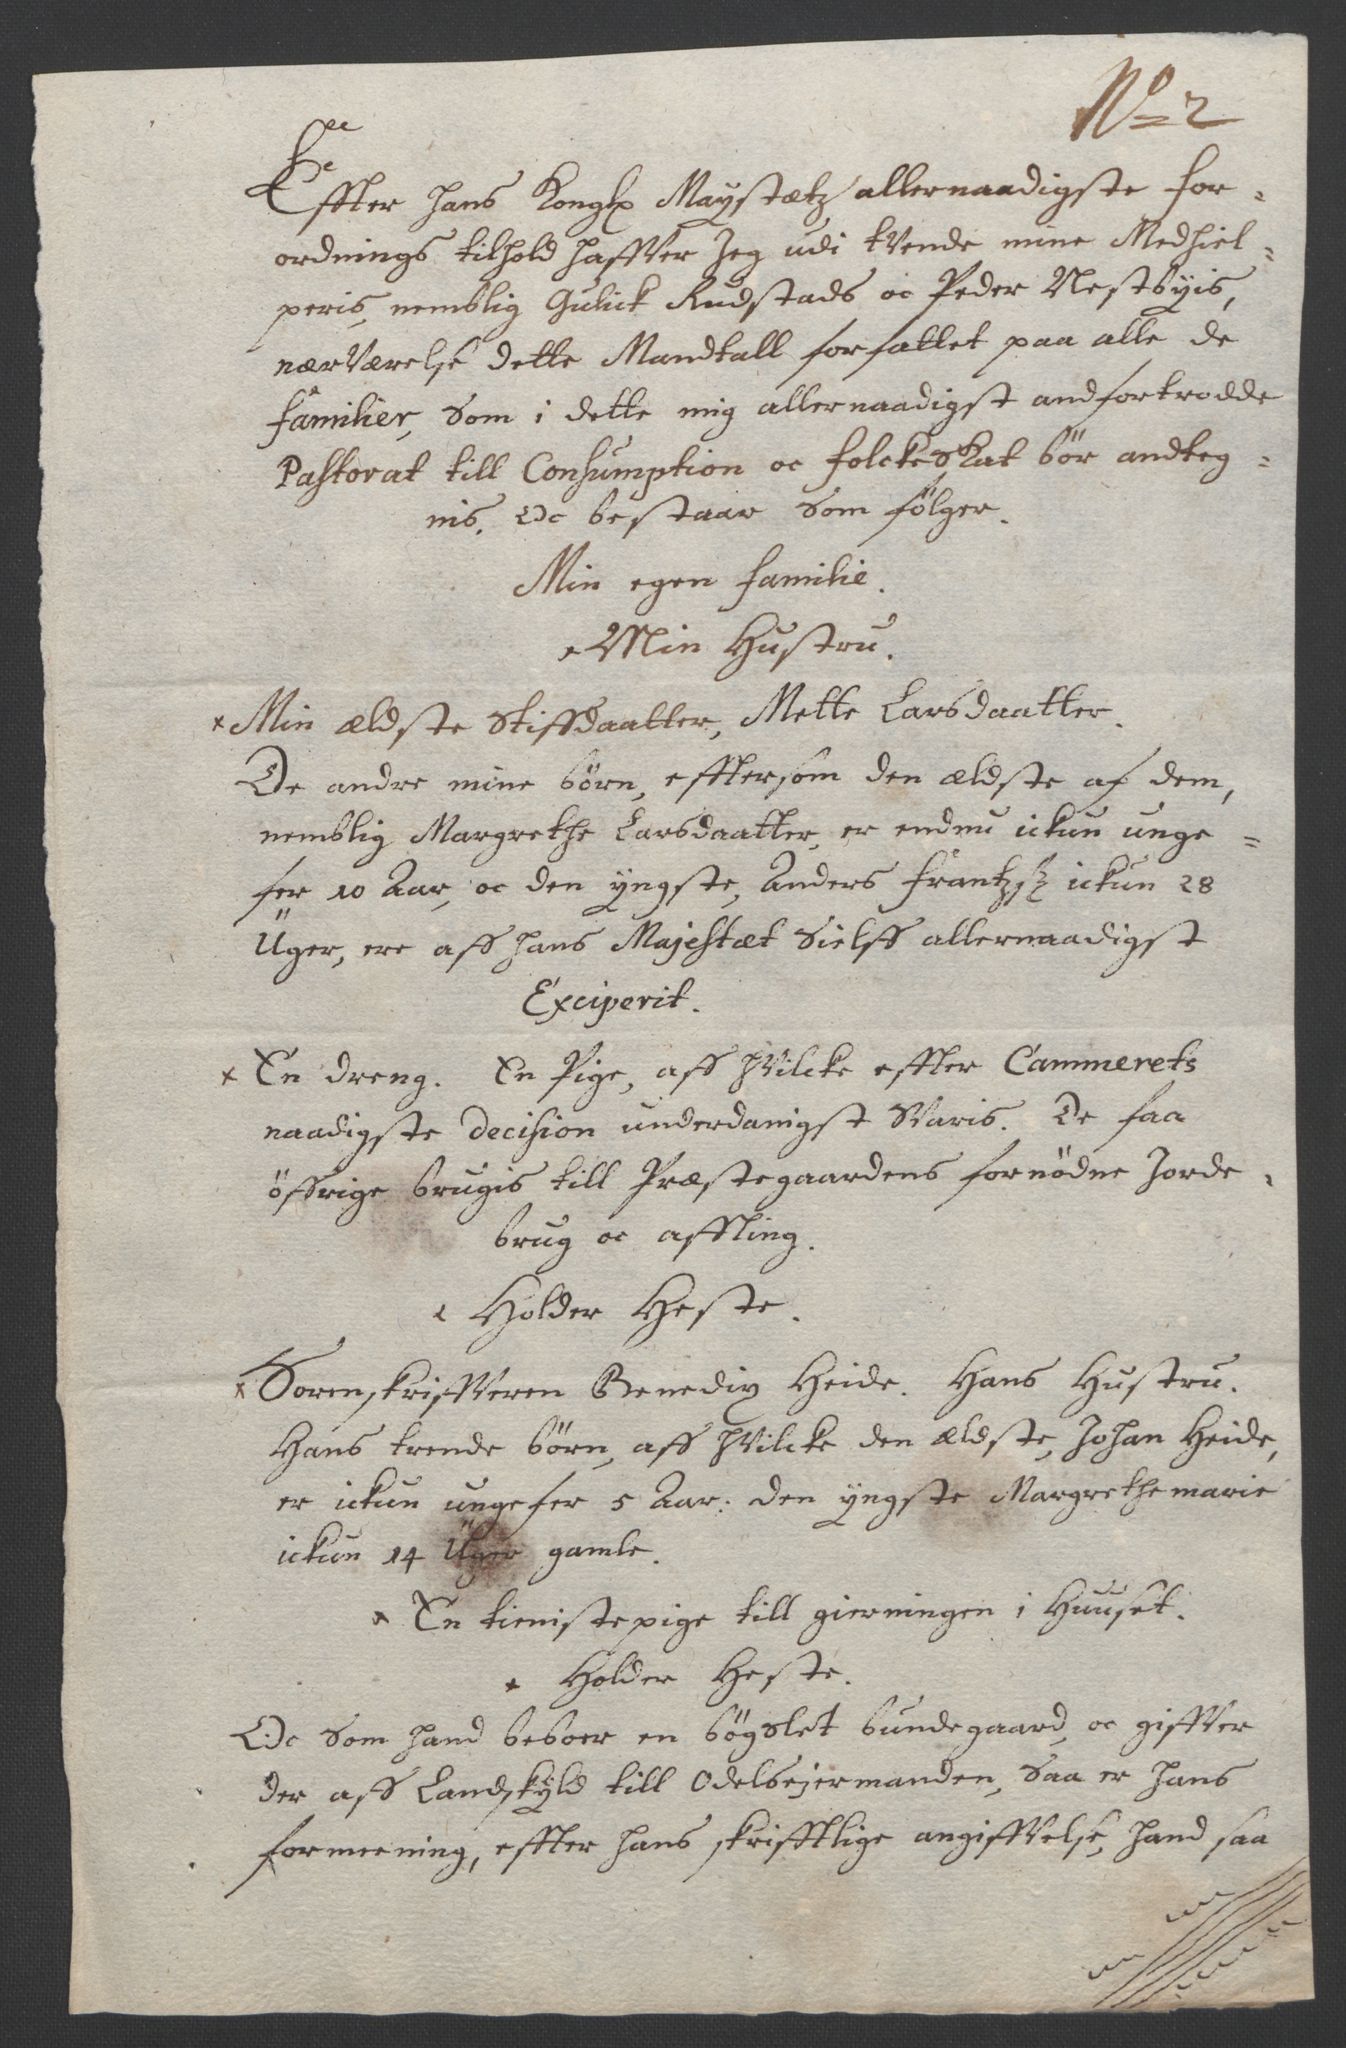 No 2
Effter hans Kongl Maystætz allernaadigste for-
ordnings tilhold haffver Jeg udi tvende mine Medhiel-
peris, nemblig Gulick Rudstads oc Peder Nestbyis,
nærværelse dette Mandtall forfattet paa alle de
familier, Som i dette mig allernaadigst andfortrodde
Pastorat till Consumption oc folckeskat bør andteg-
nis. Oc bestaar Som følger.
Min egen familie.
Min Hustru.
Min ældste Stiffdaatter, Mette Larsdaatter.
De andre mine børn, efftersom den ældste af dem,
nemblig Margrethe Larsdaatter, er endnu ickun unge-
fer 10 Aar, oc den yngste, Anders Frantzsz ickun 28
Üger, ere aff hans Majestæt Sielff allernaadigst
Exciperit.
En dreng. En Pige, aff hvilcke effter Cammerets
naadigste decision underdanigst Svaris. De faa
öffrige brugis till Præstegaardens fornödne Jorde-
brug oc affling.
Holder Heste.
Sorenskriffveren Benedix Heide. Hans Hustru.
Hans trende børn, aff hvilcke den ældste, Johan Heide,
er ickun ungefer 5 Aar. den yngste Margrethe marie
ickun 14 Üger gamle.
En tienistepige till gierningen i Huuset.
Holder Heste.
Oc Som hand beboer en bögslet bundegaard, oc giffver
der aff Landskyld till Odelsejermanden, Saa er hans
formeening, effter hans skrifftlige angiffvelse, hand saa